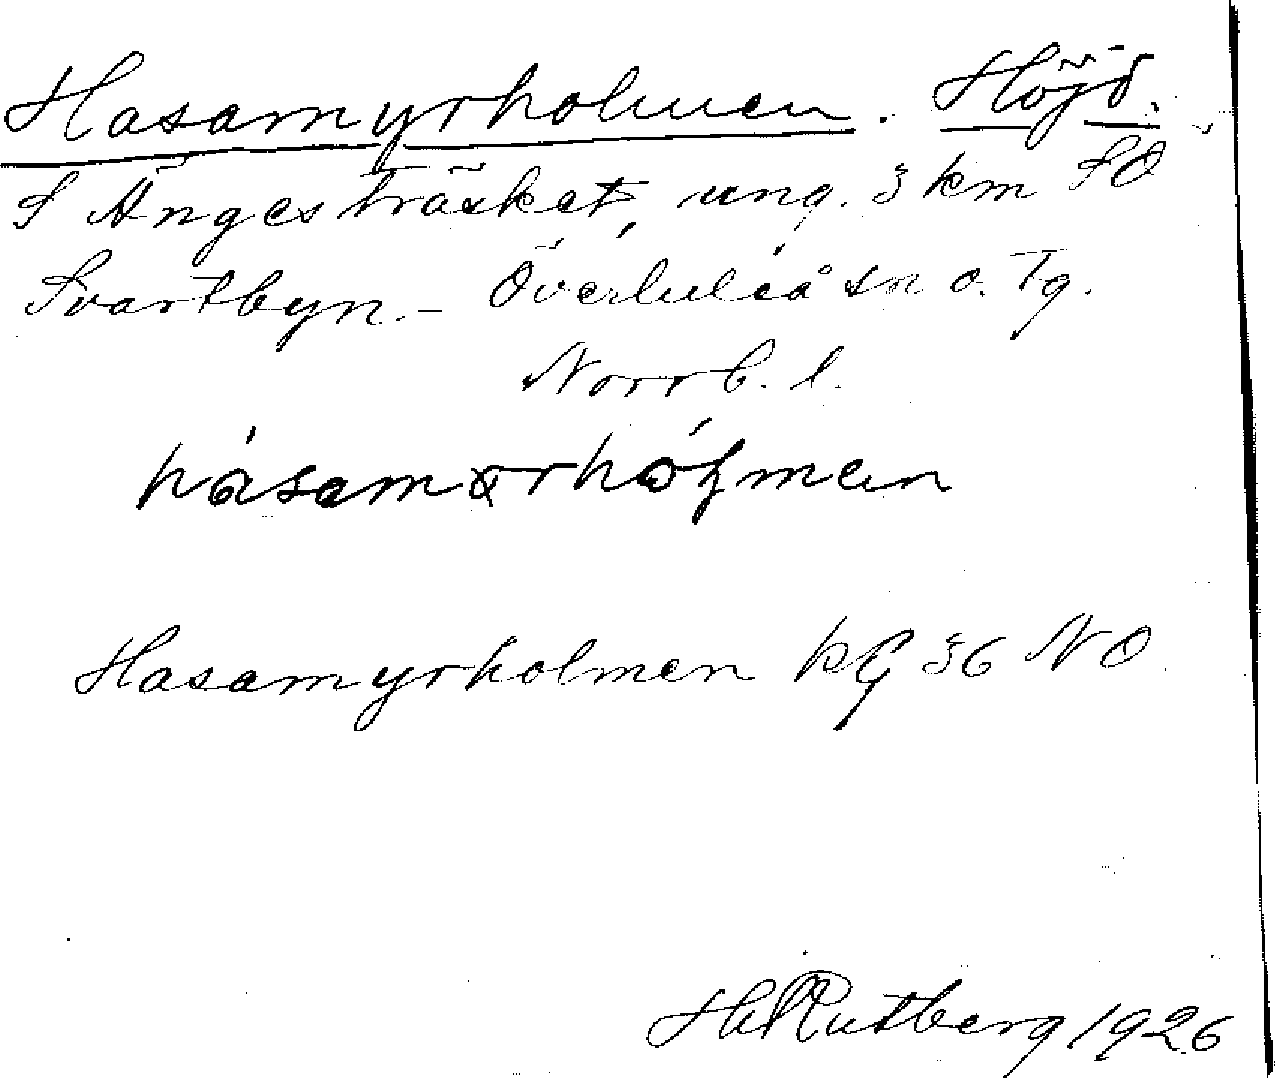 Hasamyrholmen. Höjd.
S Ängesträsket, ung. 3 km SO
Svartbyn. – Överluleå sn o. Tg.
Norrb. l.
Hasamyrholmen kg 36 NO
Rutberg 1926